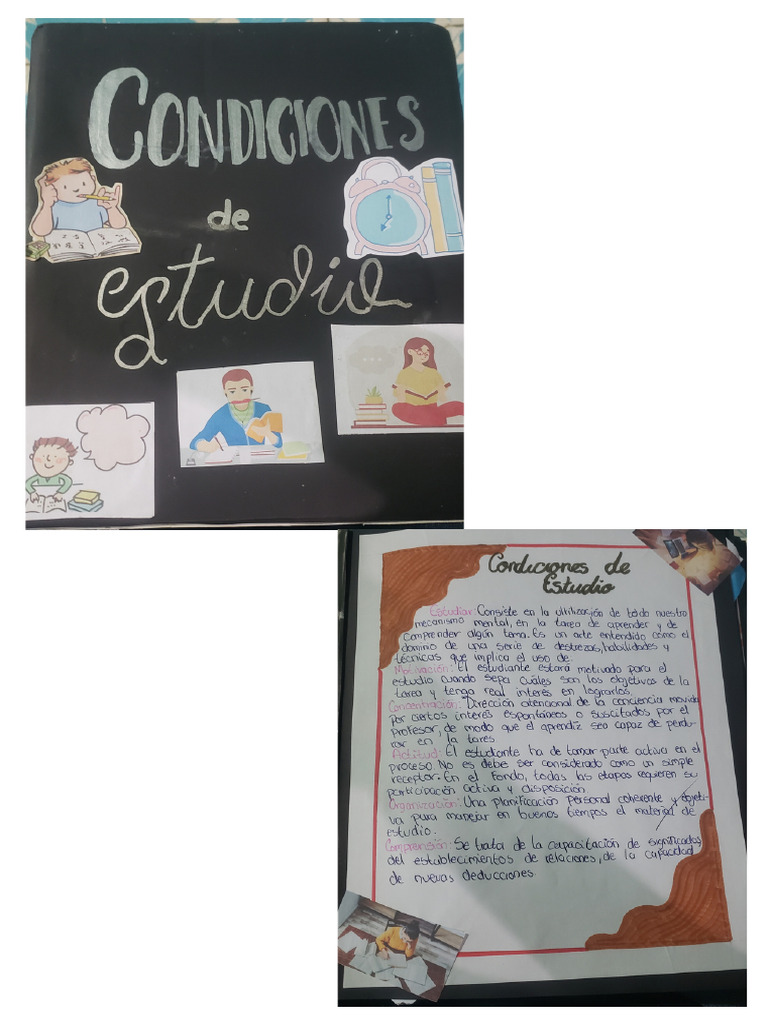 CONDICIONES
de
estudio
Condiciones de
Estudio
Estudiar: Consiste en la utilización de todo nuestro
mecanismo mental, en la tarea de aprender y de
comprender algún tema. Es un arte entendido como el
dominio de una serie de destrezas, habilidades y
técnicas que implica el uso de:
Motivación: El estudiante estará motivado para el
estudio cuando sepa cuáles son los objetivos de la
tarea y tenga real interés en lograrlos.
Concentración: Dirección atencional de la conciencia movida
por ciertos interés espontáneos o suscitados por el
profesor, de modo que el aprendiz sea capaz de perdu-
rar en la tarea.
Actitud: El estudiante ha de tomar parte activa en el
proceso. No es debe ser considerado como un simple
receptor. En el fondo, todas las etapas requieren su
participación activa y disposición.
Organización: Una planificación personal coherente y objeti-
va para manejar en buenos tiempos el material de
estudio.
Comprensión: Se trata de la capacitación de significados
del establecimientos de relaciones, de la capacidad
de nuevas deducciones.